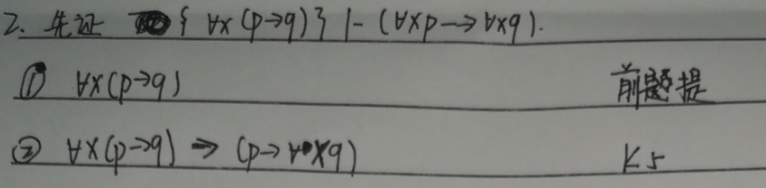 2. 先证 { ∀x(p→q)} |- (∀xp→∀xq).
① ∀x(p→q) 前题提
② ∀x(p→q) → (p→∀xq) K5